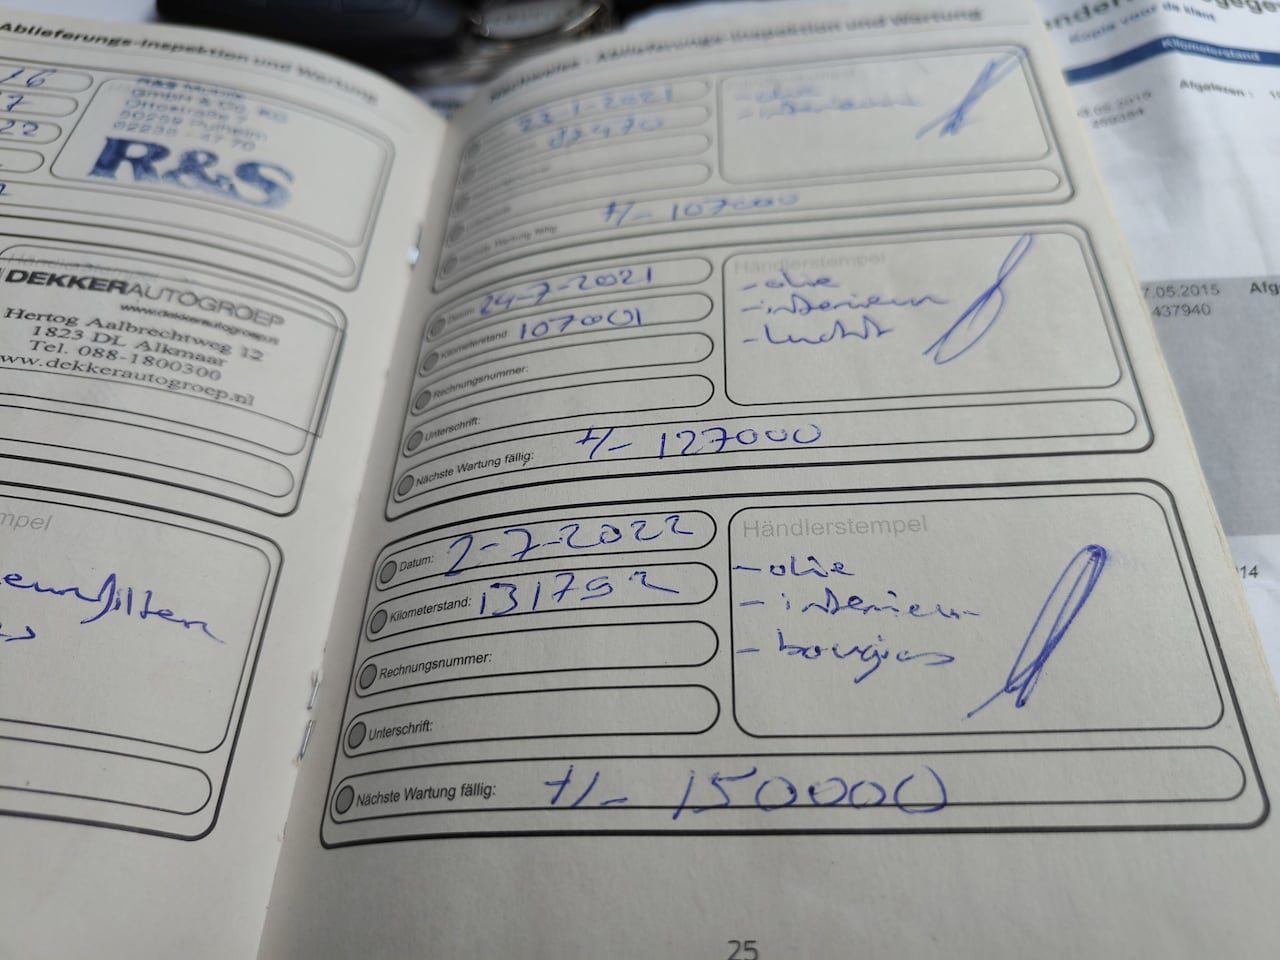 Ablieferungs-Inspektion und Wartung
16
7
22
GmbH & Co. KG
50259 Pulheim
02238 - 47 70
R&S
DEKKERAUTOGROEP
www.dekkerautogroep.nl
Hertog Aalbrechtweg 12
1823 DL Alkmaar
Tel. 088-1800300
www.dekkerautogroep.nl
mpel
Ablieferungs-Inspektion und Wartung
-1-2021
- olie
- interieur
Nächste Wartung fällig:
+/- 107000
Datum: 24-7-2021
Kilometerstand: 107001
Rechnungsnummer:
Unterschrift:
Nächste Wartung fällig: +/- 127000
Händlerstempel
- olie
- interieur
- lucht
Datum: 2-7-2022
Kilometerstand: 131792
Rechnungsnummer:
Unterschrift:
Nächste Wartung fällig: +/- 150000
Händlerstempel
- olie
- interieur
- bougies
25
Kopie voor de klant
Kilometerstand
Afgelezen :
.05.2015
7.05.2015
437940
14